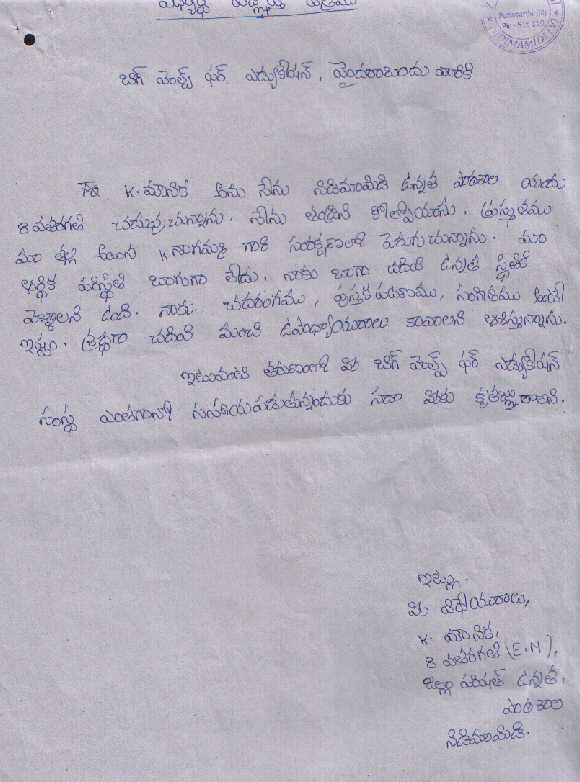 విద్యార్థి విజ్ఞప్తి పత్రము
Puttaparthi (M)
బిగ్ హెల్ప్ ఫర్ ఎడ్యుకేషన్, హైదరాబాదు వారికి
K. మౌనిక అను నేను నిడిమామిడి ఉన్నత పాఠశాల యందు
8 వతరగతి చదువుచున్నాను. నేను తండ్రిని కోల్పోయాను. ప్రస్తుతము
మా తల్లి అయిన K నాగమ్మ గారి సంరక్షణలో పెరుగుచున్నాను. మా
ఆర్థిక పరిస్థితి బాగుగా లేదు. నాకు బాగా చదివి ఉన్నత స్థితికి
వెళ్ళాలని ఉంది. నాకు చదరంగము, పుస్తక పఠనము, సంగీతము అంటే
ఇష్టం. శ్రద్ధగా చదివి మంచి ఉపాధ్యాయురాలు కావాలని ఆశిస్తున్నాను.
ఇటువంటి తరుణంలో మీ బిగ్ హెల్ప్ ఫర్ ఎడ్యుకేషన్
సంస్థ ఎంతగానో సహాయపడుతున్నందుకు సదా మీకు కృతజ్ఞురాలిని.
ఇట్లు
మీ విధేయురాలు,
K. మౌనిక,
8 వతరగతి (E.M),
జిల్లా పరిషత్ ఉన్నత
పాఠశాల
నిడిమామిడి.